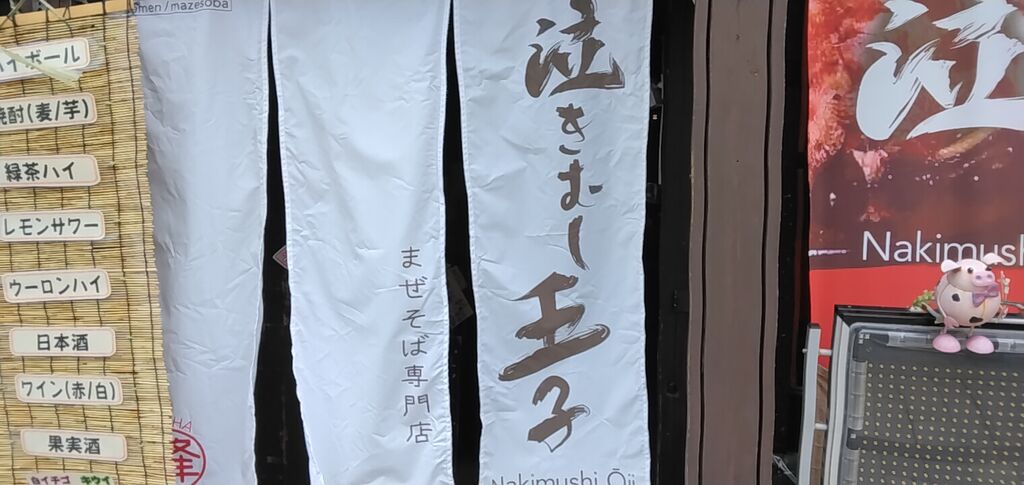 ハイボール
焼酎(麦/芋)
緑茶ハイ
レモンサワー
ウーロンハイ
日本酒
ワイン(赤/白)
果実酒
白イチゴ キウイ
men/mazesoba
HA
まぜそば専門店
泣きむし王子
Nakimushi Ōji
泣
Nakimush